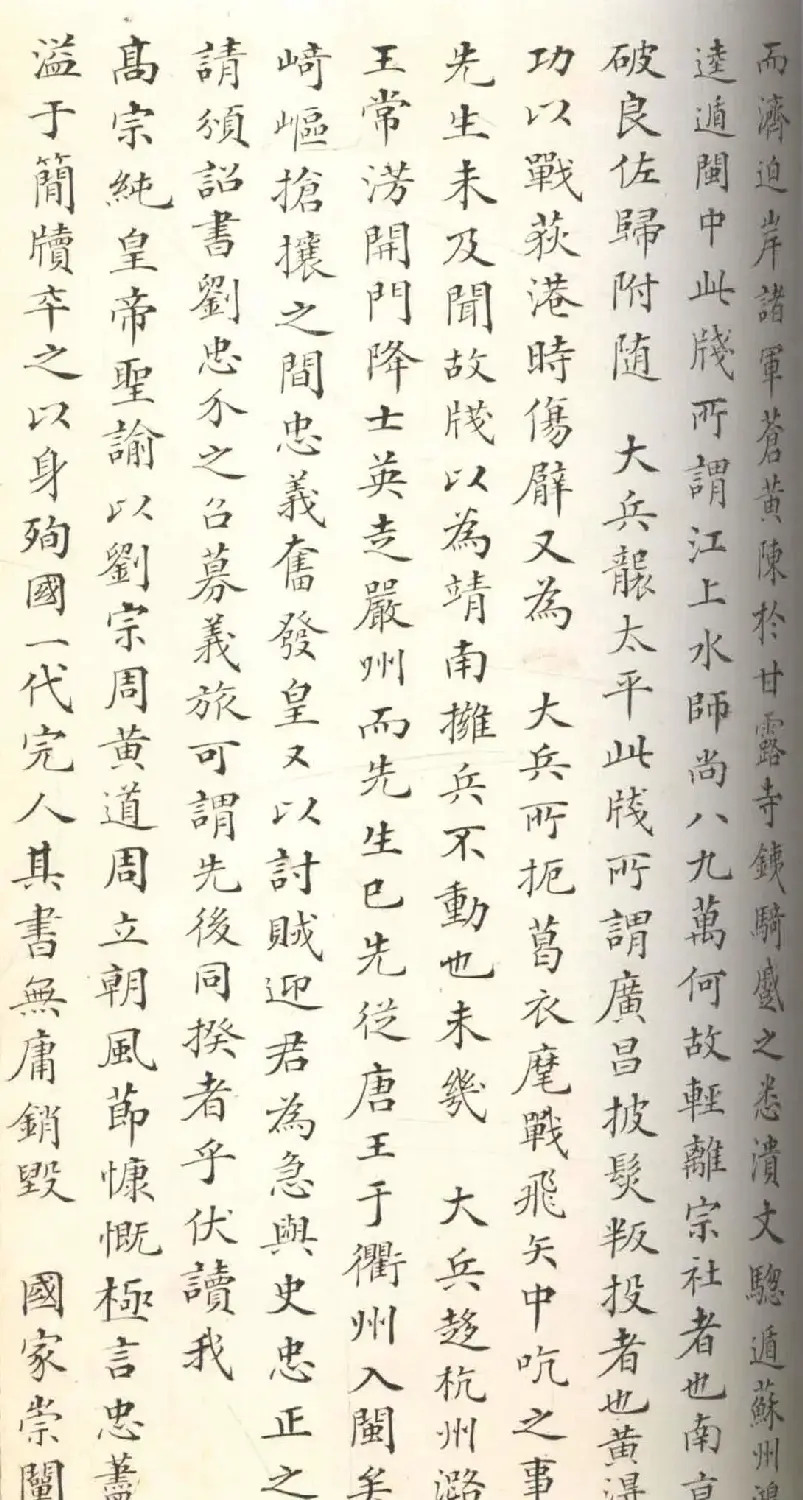 而濟迫岸諸軍蒼黃陳於甘露寺鐵騎蹙之悉潰文驄遁蘇州鴻
逵遁閩中此牋所謂江上水師尚八九萬何故輕離宗社者也南京
破良佐歸附随 大兵襲太平此牋所謂廣昌披髮叛投者也黃得
功以戰荻港時傷臂又為 大兵所扼葛衣麾戰飛矢中吭之事
先生未及聞故牋以為靖南擁兵不動也未幾 大兵趍杭州潞
王常淓開門降士英走嚴州而先生已先從唐王于衢州入閩矣
崎嶇搶攘之間忠義奮發皇又以討賊迎君為急與史忠正之
請頒詔書劉忠介之召募義旅可謂先後同揆者乎伏讀我
高宗純皇帝聖諭以劉宗周黃道周立朝風節慷慨極言忠藎
溢于簡牘卒之以身殉國一代完人其書無庸銷毀 國家崇闡